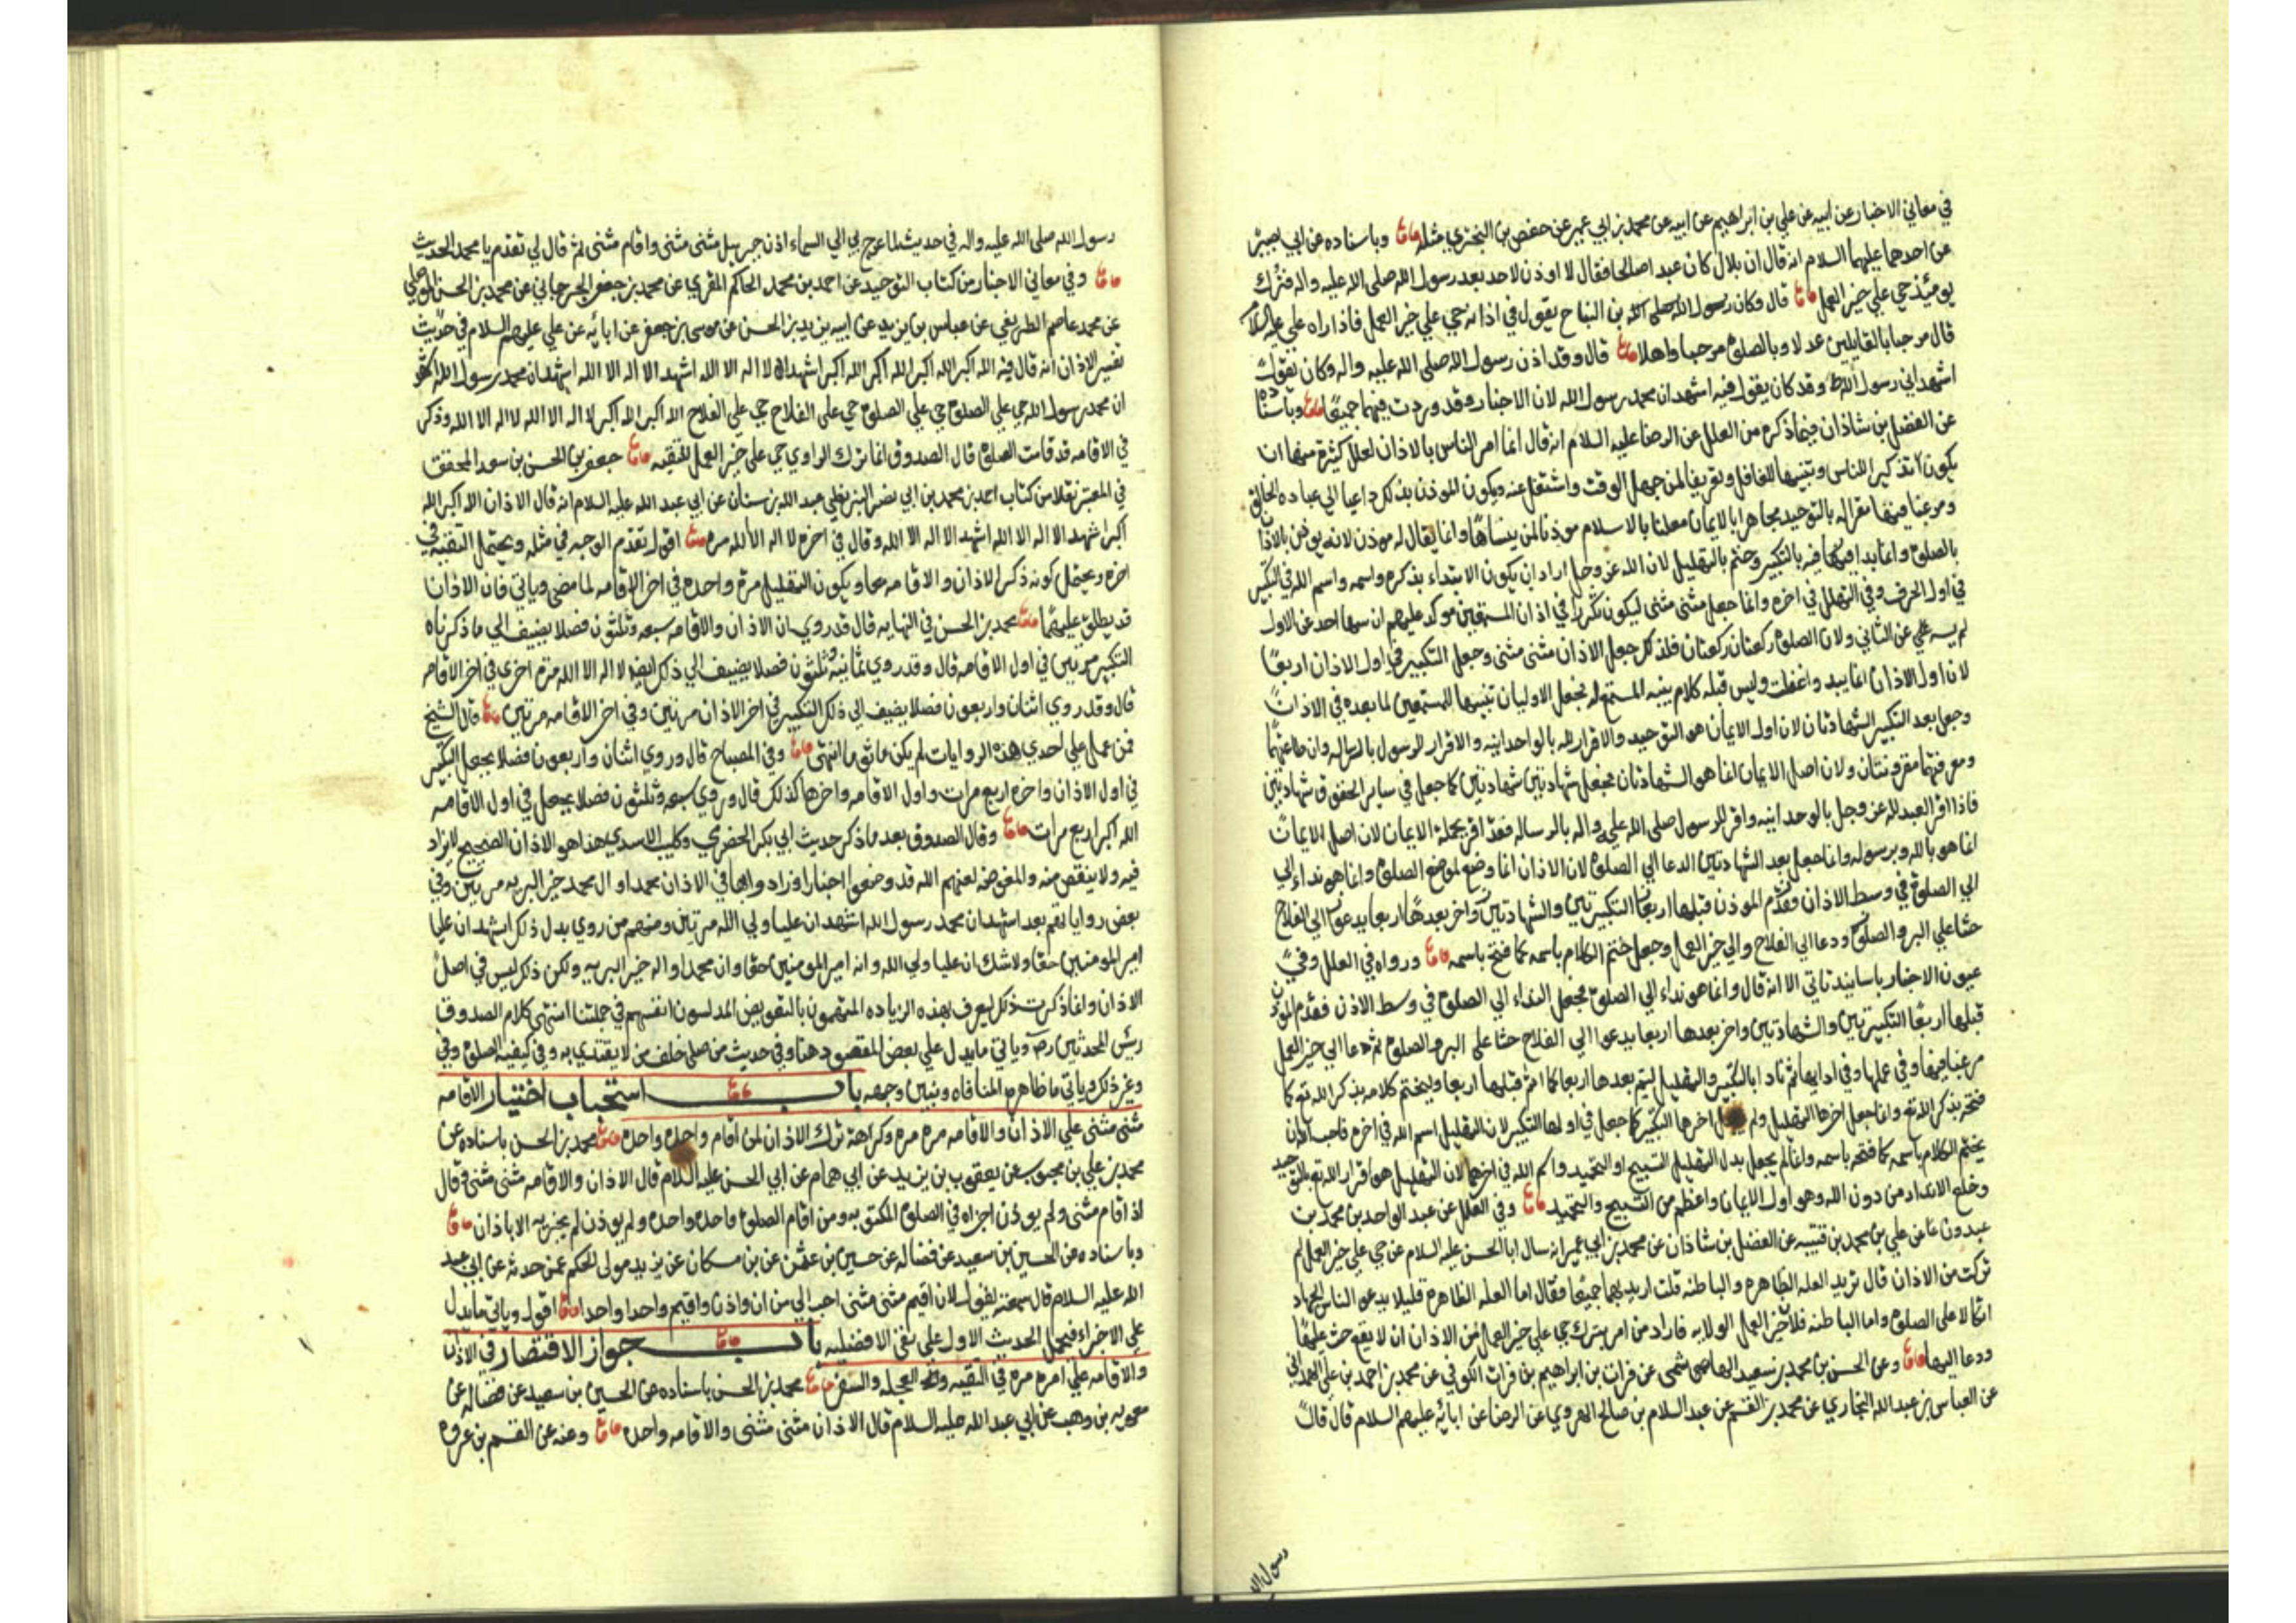 في معاني الاخبار عن ابيه عن علي بن ابراهيم عن ابيه عن محمد بن ابي عمير عن حفص بن البختري مثله وباسناده عن ابي بصير
عن احدهما عليهما السلام انه قال ان بلال كان عبدا صالحا فقال لا اوذن لاحد بعد رسول الله صلى الله عليه واله فترك
يومئذ حي علي خير العمل قال وكان بن النباح يقول في اذانه حي علي خير العمل فاذا راه علي عليه السلام
قال مرحبا بالقايلين عدلا وبالصلوة مرحبا واهلا قال وقد اذن رسول الله صلى الله عليه واله وكان يقول
اشهد اني رسول الله وقد كان يقول فيه اشهد ان محمد رسول الله لان الاخبار وقد وردت فيهما جميعا وباسناده
عن الفضل بن شاذان فيما ذكره من العلل عن الرضا عليه السلام انه قال انما امر الناس بالاذان لعلل كثيرة منها ان
يكون تذكيرا للناس وتنبيها للغافل وتعريفا لمن جهل الوقت واشتغل عنه ويكون الموذن بذلك داعيا الي عباده الخالق
ومرغبا فيها مقرا له بالتوحيد مجاهرا بالايمان معلنا بالاسلام موذنا لمن ينساها وانما يقال له موذن لانه يوذن بالاذان
بالصلوة وانما بدا فيه بالتكبير وختم بالتهليل لان الله عز وجل اراد ان يكون الابتداء بذكره واسمه واسم الله في التكبير
في اول الحرف وفي التهليل في اخره وانما جعل مثنى مثنى ليكون تكرارا في اذان المستمعين موكدا عليهم ان سها احد عن الاول
لم يسه عن الثاني ولان الصلوة ركعتان ركعتان فلذلك جعل الاذان مثنى مثنى وجعل التكبير في اول الاذان اربعا
لان اول الاذان انما يبدو غفلة وليس قبله كلام ينبه المستمع له فجعل الاوليان تنبيها للمستمعين لما بعده في الاذان
وجعل بعد التكبير الشهادتان لان اول الايمان هو التوحيد والاقرار لله بالواحدانيه والاقرار للرسول بالرساله وان طاعتهما
ومعرفتهما مقرونتان ولان اصل الايمان انما هو الشهادتان فجعل شهادتين شهادتين كما جعل في ساير الحقوق شهادتين
فاذا اقر العبد لله عز وجل بالوحدانيه واقر للرسول صلى الله عليه واله بالرساله فقد اقر بجملة الايمان لان اصل الايمان
انما هو بالله وبرسوله وانما جعل بعد الشهادتين الدعا الي الصلوة لان الاذان انما وضع لموضع الصلوة وانما هو نداء الي
الي الصلوة في وسط الاذان فقدم الموذن قبلها اربعا التكبيرتين والشهادتين واخر بعدها اربعا يدعو الي الفلاح
حثا علي البر والصلوة ودعا الي الفلاح والي خير العمل وجعل ختم الكلام باسمه كما فتح باسمه ورواه في العلل وفي
عيون الاخبار باسانيد تاتي الا انه قال وانما هو نداء الي الصلوة فجعل النداء الي الصلوة في وسط الاذن فقدم الموذن
قبلها اربعا التكبيرتين والشهادتين واخر بعدها اربعا يدعوا الي الفلاح حثا على البر والصلوة ثم دعا الي خير العمل
مرغبا فيها وفي عملها وفي ادايها ثم نادا بالتكبير والتهليل ليتم بعدها اربعا كما اتم قبلها اربعا وليختم كلامه بذكر الله تع كما
فتحه بذكر الله تع وانما جعل اخرها التهليل ولم اخرها التكبير كما جعل في اولها التكبير لان التهليل اسم الله في اخره فاحب الله ان
يختم الكلام باسمه كما فتحه باسمه وانما لم يجعل بدل التهليل التسبيح او التحميد واسم الله في اخرهما لان التهليل هو اقرار لله تع بالتوحيد
وخلع الانداد من دون الله وهو اول الايمان واعظم من التسبيح والتحميد وفي العلل عن عبد الواحد بن محمد بن
عبدون عن علي بن محمد بن قتيبه عن الفضل بن شاذان عن محمد بن ابي عمير انه سال ابا الحسن عليه السلام عن حي علي خير العمل لم
تركت من الاذان قال تريد العله الظاهره والباطنه قلت اريدهما جميعا فقال اما العله الظاهره فليلا يدع الناس الجهاد
اتكالا على الصلوة واما الباطنه فلان خير العمل الولايه فاراد من امر بترك حي علي خير العمل من الاذان ان لا يقع حث عليها
ودعا اليها وعن الحسن بن محمد بن سعيد الهاشمى عن فرات بن ابراهيم بن فرات الكوفي عن محمد بن احمد بن علي الهمداني
عن العباس بن عبد الله البخاري عن محمد بن القسم عن عبد السلام بن صالح الهروي عن الرضا عن ابائه عليهم السلام قال قال
رسول الله
رسول الله صلى الله عليه واله في حديث لما عرج بي الي السماء اذن جبرييل مثنى مثنى واقام مثنى مثنى ثم قال لي تقدم يا محمد الحديث
وفي معاني الاخبار من كتاب التوحيد عن احمد بن محمد الحاكم المقري عن محمد بن جعفر الجرجاني عن محمد بن الحسن الموصلي
عن محمد عاصم الطريفي عن عباس بن يزيد عن ابيه بن يزيد بن الحسن عن موسى بن جعفر عن ابائه عن علي عليهم السلام في حديث
تفسير الاذان انه قال فيه الله اكبر الله اكبر الله اكبر الله اكبر اشهد ان لا اله الا الله اشهد الا اله الا الله اشهد ان محمد رسول الله اشهد
ان محمد رسول الله حي علي الصلوة حي علي الصلوة حي على الفلاح حي علي الفلاح الله اكبر الله اكبر لا اله الا الله لا اله الا الله وذكر
في الاقامه قد قامت الصلوة قال الصدوق انما ترك الراوي حي على خير العمل للتقيه جعفر بن الحسن بن سعيد المحقق
في المعتبر نقلا من كتاب احمد بن محمد بن ابي نصر البزنطي عبد الله بن سنان عن ابي عبد الله عليه السلام انه قال الاذان الله اكبر الله
اكبر اشهد الا اله الا الله اشهد الا اله الا الله وقال في اخره لا اله الا الله مره اقول تقدم الوجه في مثله ويحتمل التقيه في
اخره ويحتمل كونه ذكر الاذان والاقامه معا ويكون التهليل مرة واحده في اخر الاقامه لما مضى وياتي فان الاذان
قد يطلق عليهما محمد بن الحسن في النهايه قال قد روي ان الاذان والاقامه سبعه وثلثون فصلا يضيف الي ما ذكرناه
التكبير مرتين في اول الاقامه قال وقد روي ثمانيه وثلثون فصلا يضيف الي ذلك ايضا لا اله الا الله مرة اخرى في اخر الاقامه
قال وقد روي اثنان واربعون فصلا يضيف الي ذلك التكبير في اخر الاذان مرتين وفي اخر الاقامه مرتين قال الشيخ
فمن عمل علي احدي هذه الروايات لم يكن ماثوما انتهى وفي المصباح قال وروي اثنان واربعون فصلا يجعل التكبير
في اول الاذان واخره اربع مرات واول الاقامه واخرها كذلك قال وروي سبعه وثلثون فصلا يجعل في اول الاقامه
الله اكبر اربع مرات وقال الصدوق بعد ما ذكر حديث ابي بكر الحضرمي وكليب الاسدي هذا هو الاذان الصحيح لا يزاد
فيه ولا ينقص منه والمفوضه لعنهم الله قد وضعوا اخبارا وزادوا بها في الاذان محمد وال محمد خير البريه مرتين وفي
بعض رواياتهم بعد اشهد ان محمد رسول الله اشهد ان عليا ولي الله مرتين ومنهم من روي بدل ذلك اشهد ان عليا
امير المومنين حقا ولا شك ان عليا ولي الله وانه امير المومنين حقا وان محمدا واله خير البريه ولكن ذلك ليس في اصل
الاذان وانما ذكرت ذلك ليعرف بهذه الزياده المتهمون بالتفويض المدلسون انفسهم في جملتنا انتهى كلام الصدوق
رئيس المحدثين وياتي ما يدل علي بعض المقصود هنا وفي حديث من صلى خلف من لا يقتدي به وفي كيفيه الصلوة وفي
وغير ذلك وياتي ما ظاهره المنافاه ونبين وجهه باب استحباب اختيار الاقامه
مثنى مثنى علي الاذان والاقامه مره مره وكراهة ترك الاذان لمن اقام واحده واحده محمد بن الحسن باسناده عن
محمد بن علي بن محبوب عن يعقوب بن يزيد عن ابي همام عن ابي الحسن عليه السلام قال الاذان والاقامه مثنى مثنى وقال
اذا اقام مثنى ولم يوذن اجزاه في الصلوة المكتوبه ومن اقام الصلوة واحده واحده ولم يوذن لم يجزيه الا باذان
وباسناده عن الحسين بن سعيد عن فضاله عن حسين بن عثمن عن بن مسكان عن يزيد مولى الحكم عمن حدثه عن ابي عبد
الله عليه السلام قال سمعته يقول لان اقيم مثنى مثنى احب الي من ان اوذن واقيم واحدا واحدا اقول وياتي ما يدل
علي الاجزاء فيحمل الحديث الاول علي نفي الافضليه باب جواز الاقتصار في الاذان
والاقامه علي امره مره في التقيه والعجله والسفر محمد بن الحسن باسناده عن الحسين بن سعيد عن فضاله عن
معويه بن وهب عن ابي عبد الله عليه السلام قال الاذان مثنى مثنى والاقامه واحده وعنه عن القسم بن عروه